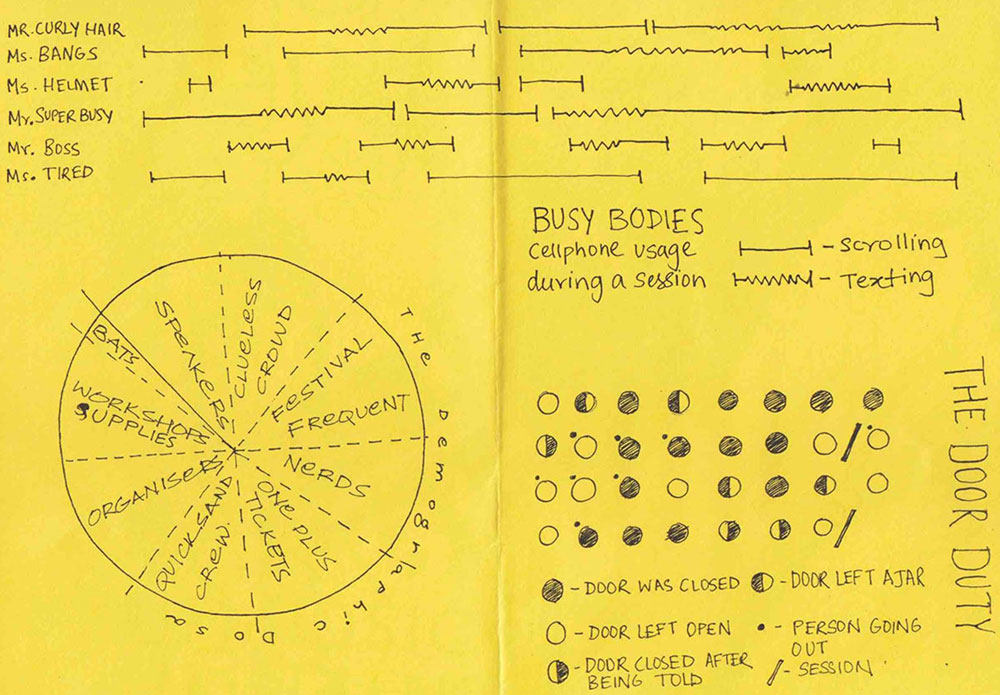 MR. CURLY HAIR
Ms. BANGS
Ms. HELMET
Mr. SUPER BUSY
Mr. BOSS
Ms. TIRED
BUSY BODIES
cellphone usage
during a session
- scrolling
- Texting
THE DEMOGRAPHIC DOSA
BATS
SPEAKERS
CLUELESS
CROWD
FESTIVAL
FREQUENT
NERDS
ONE PLUS
TICKETS
QUICKSAND
CREW.
ORGANISERS
WORKSHOPS
SUPPLIES
THE DOOR DUTY
- DOOR WAS CLOSED
- DOOR LEFT AJAR
- DOOR LEFT OPEN
- PERSON GOING
OUT
- DOOR CLOSED AFTER
BEING TOLD
- SESSION